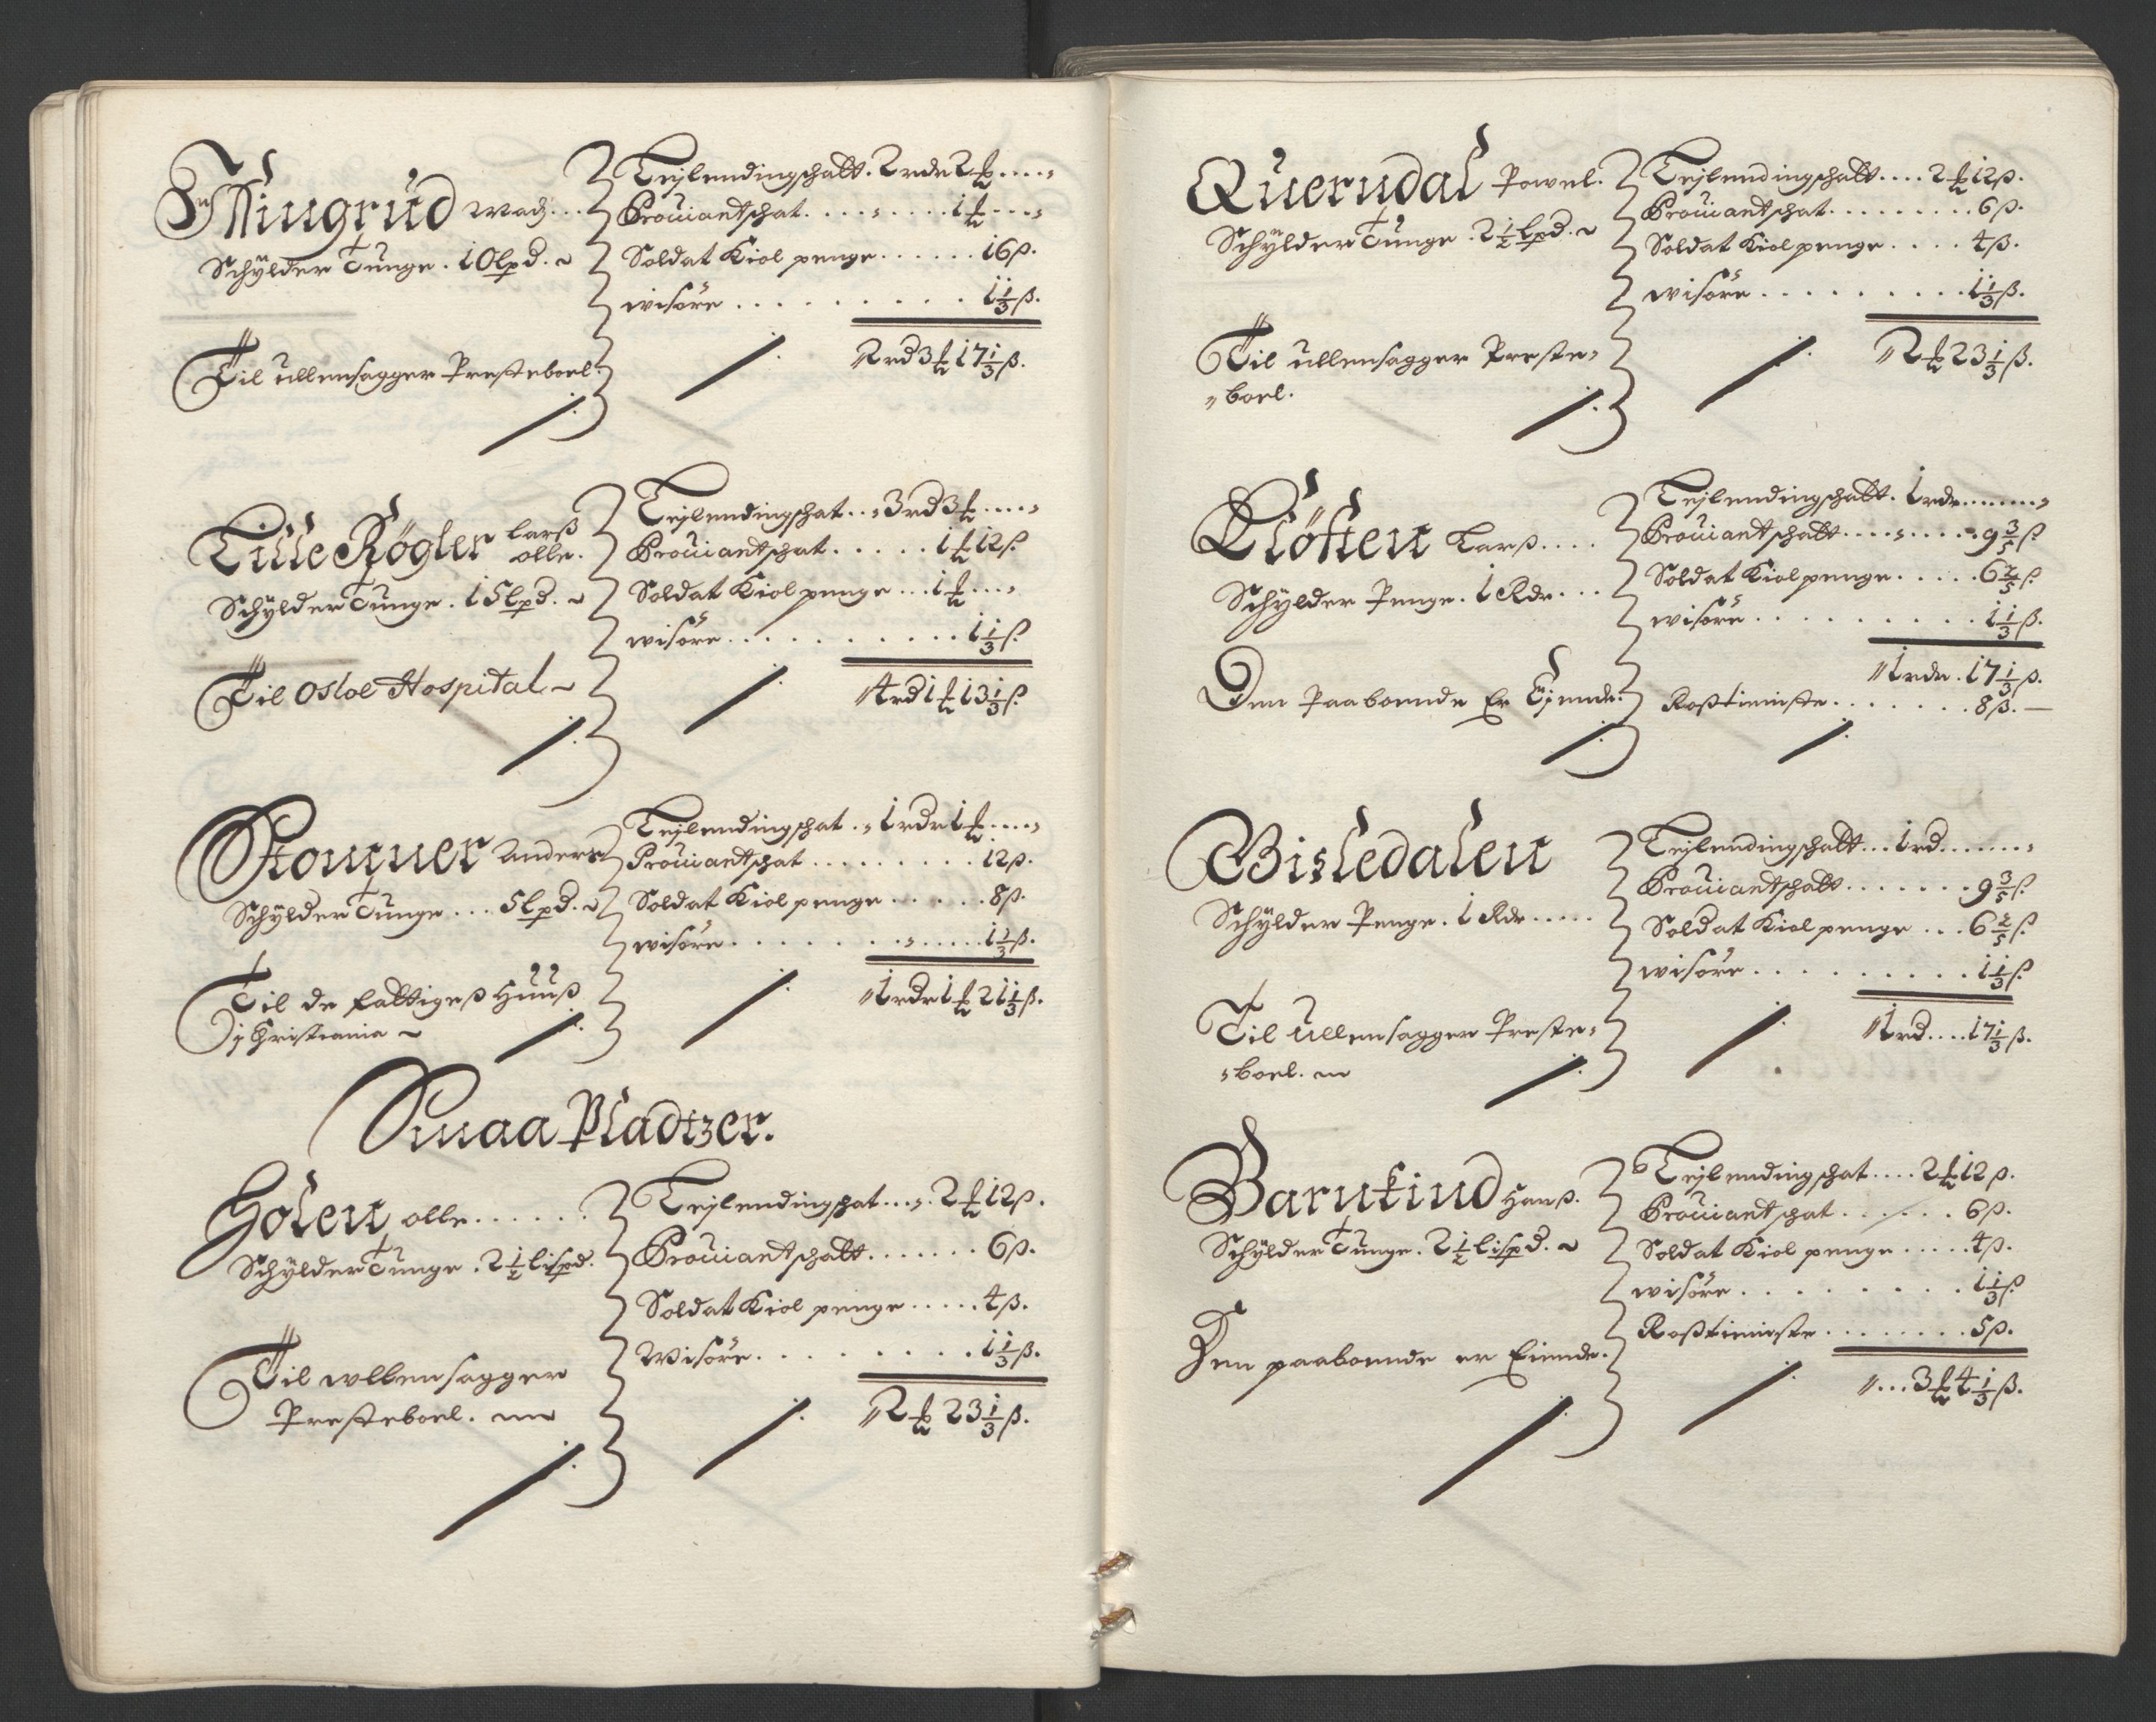 Mingrud Mads...
Schÿlder Tunge. 10 lpd.
Til Ullensagger Presteboel.
Leylendingschatt. 2 rdr 2 ℔....
Prouiantschat........1 ℔....
Soldat Kiol penge......16 ß.
wisöre..........1 1/3 ß.
2 rd 3 ℔ 17 1/3 ß.
Lille Røgler Larß
olle.
Schÿlder Tunge. 15 lpd.
Til Osloe Hospital
Leylendingschat..3 rd 3 ℔....
Prouiantschat.....1 ℔ 12 ß
Soldat Kiol penge...1 ℔...
wisöre..........1 1/3 ß
4 rd 1 ℔ 13 1/3 ß
Anders
Schÿlder Tunge...5 lpd.
Til de fattigeß Huuß
j Christiania
Leylendingschat..1 rdr 1 ℔....
Prouiantschat.........12 ß.
Soldat Kiol penge......8 ß.
wisöre............1 1/3 ß.
1 rdr 1 ℔ 21 1/3 ß.
Smaa Pladtzer.
Holen olle......
Schÿlder Tunge. 2 1/2 lispd.
Til Ullensagger
Presteboel.
Leylendingschat.... 2 ℔ 12 ß.
Prouiantschatt.......6 ß.
Soldat Kiol penge.....4 ß.
Wisöre.........1 1/3 ß.
2 ℔ 23 1/3 ß.
Querndal Powel.
Schÿlder Tunge. 2 1/2 lpd.
Til Ullensagger Preste-
boel.
Leylendingschatt....2 ℔ 12 ß.
Prouiantschat.........6 ß.
Soldat Kiol penge....4 ß.
wisöre.........1 1/3 ß.
2 ℔ 23 1/3 ß.
Cløften Larß....
Schÿlder Penge. 1 Rdr...
Den Paaboende Er Ejende.
Leylendingschatt. 1 rdr.......
Prouiantschatt........9 3/5 ß
Soldat Kiol penge.....6 2/5 ß.
wisöre..........1 1/3 ß.
1 rdr. 17 1/3 ß.
Roßtieniste.......8 ß.
Bisledalen
Schÿlder Penge. 1 Rdr.....
Til Ullensagger Preste-
boel.
Leylendingschatt...1 rd.......
Prouiantschatt.......9 3/5 ß.
Soldat Kiol penge...6 2/5 ß
wisöre.........1 1/3 ß.
1 rd....17 1/3 ß.
Barnkind Hanß.
Schÿlder Tunge. 2 1/2 lispd.
Den paaboende er Eiende.
Leylendingschat....2 ℔ 12 ß.
Prouiantschat......6 ß.
Soldat Kiol penge.....4 ß.
wisöre.........1 1/3 ß
Roßtieniste........5 ß.
...3 ℔ 4 1/3 ß.